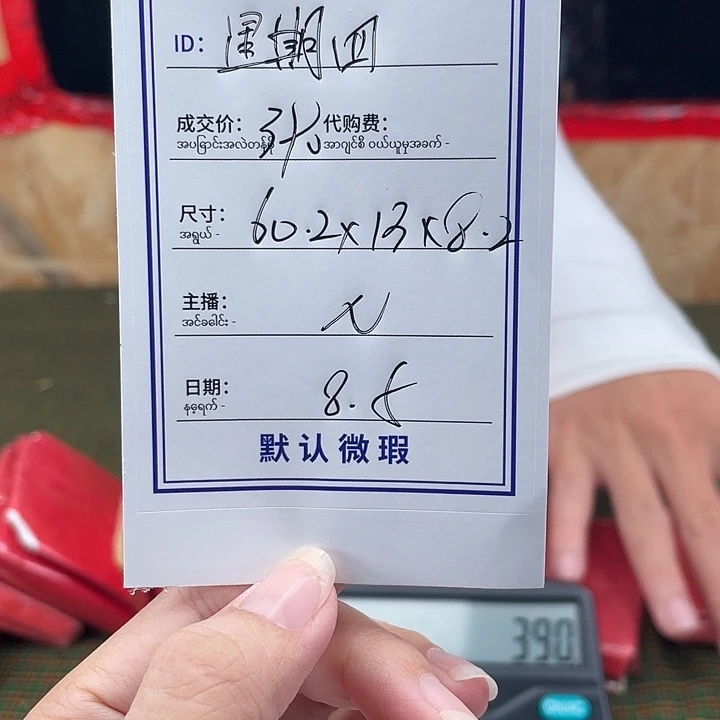 ID: 星期四
成交价: 代购费:
အပြောင်းအလဲတန်ဖိုး အာဂျင်စီ ဝယ်ယူမှုအခက် -
尺寸: 60.2x13x8.2
အရွယ် -
主播:
အင်ခခေါင်း -
日期: 8.
နေ့ရက် -
默认微瑕
390